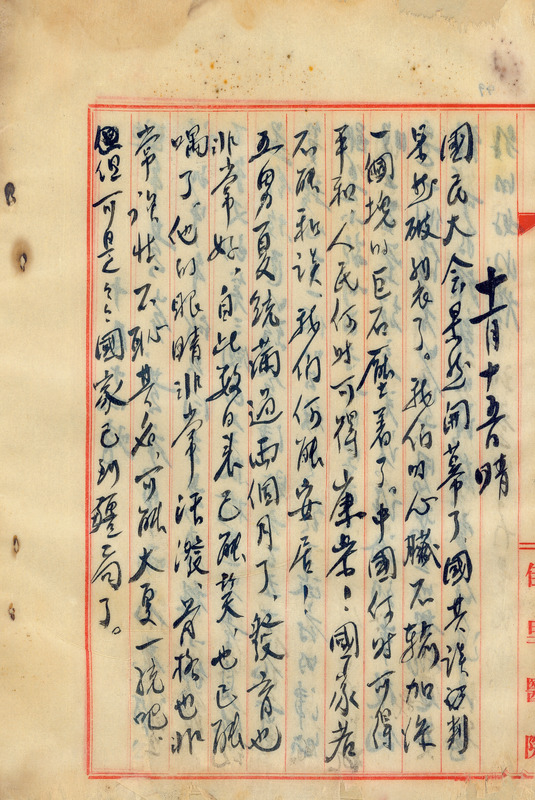 十一月十五日 晴
國民大會果然開幕了，國共談判
果然破裂了。我們的心臟不蝓加深
一個塊的巨石壓着了。中國何時可得
平和，人民何時可得康樂！國家若
不能和談，我們何能安居！
五男夏統滿過兩個月了，發育也
非常好，自此數日來已能笑，也已能
喁了，他的眼睛非常活潑、骨格也非
常
不恥其名，可能大夏一統吧
但可是今國家已到疆局了。
佳里醫院